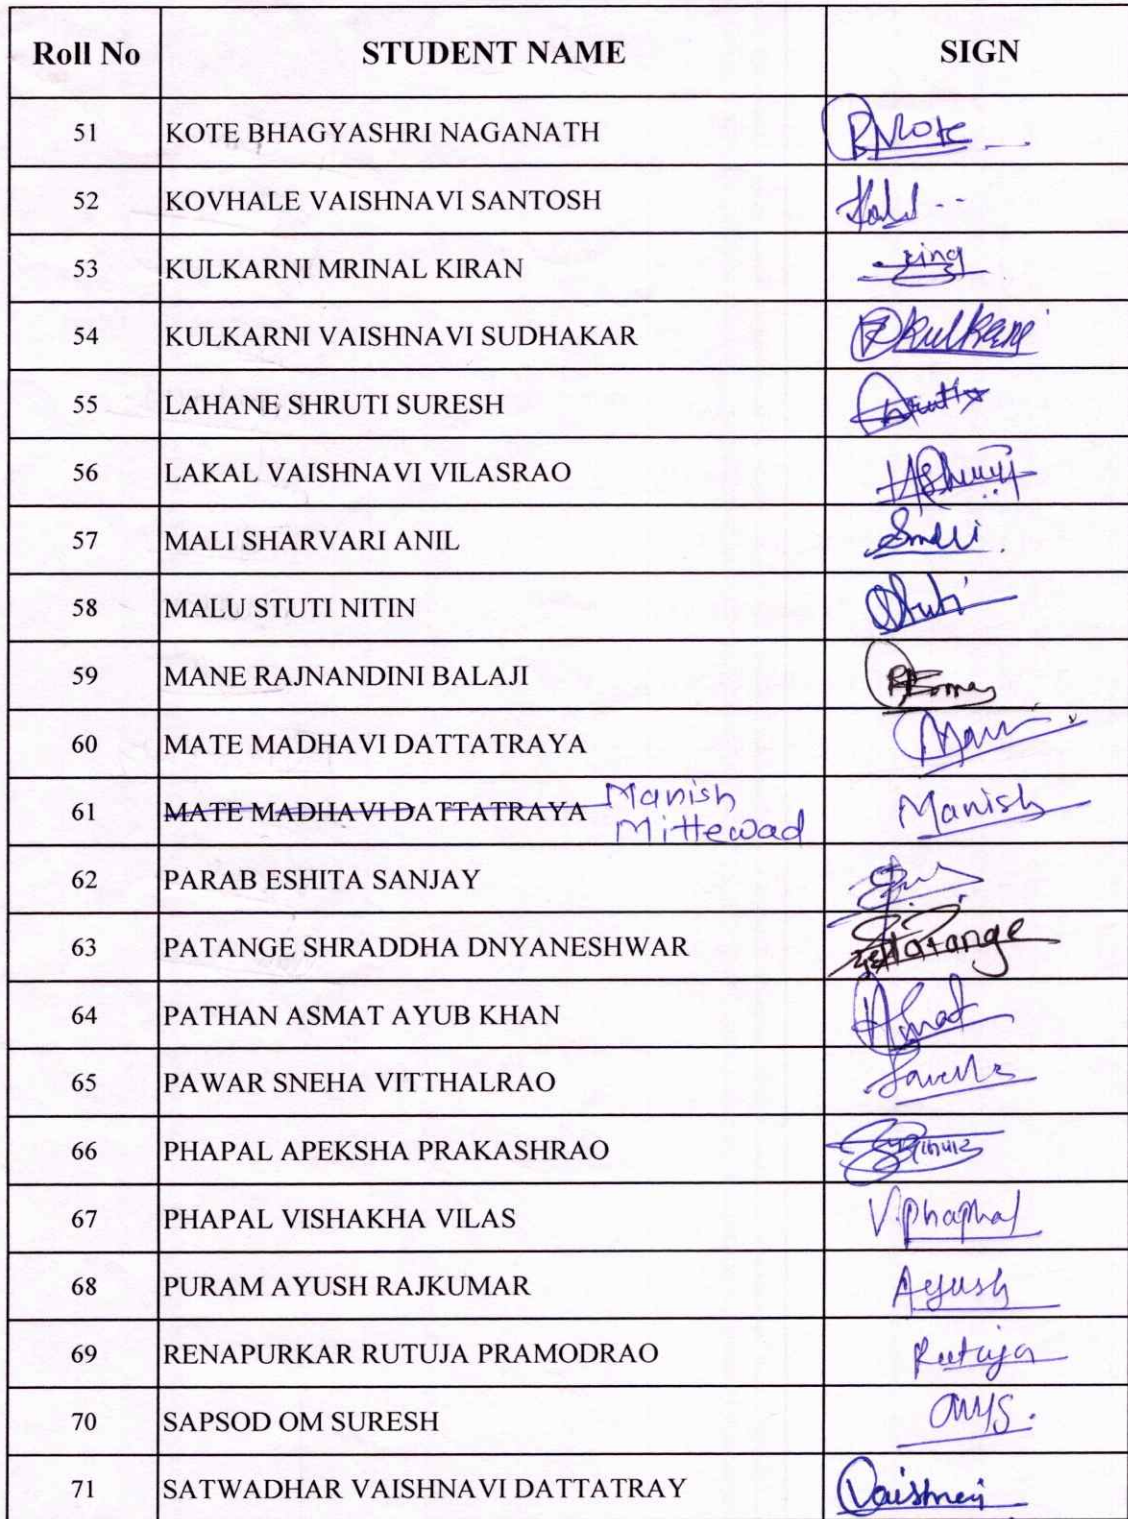 Roll No STUDENT NAME SIGN
51 KOTE BHAGYASHRI NAGANATH
52 KOVHALE VAISHNAVI SANTOSH
53 KULKARNI MRINAL KIRAN
54 KULKARNI VAISHNAVI SUDHAKAR
55 LAHANE SHRUTI SURESH
56 LAKAL VAISHNAVI VILASRAO
57 MALI SHARVARI ANIL
58 MALU STUTI NITIN
59 MANE RAJNANDINI BALAJI
60 MATE MADHAVI DATTATRAYA
61 MATE MADHAVI DATTATRAYA Manish Mittewad Manish
62 PARAB ESHITA SANJAY
63 PATANGE SHRADDHA DNYANESHWAR Patange
64 PATHAN ASMAT AYUB KHAN
65 PAWAR SNEHA VITTHALRAO
66 PHAPAL APEKSHA PRAKASHRAO
67 PHAPAL VISHAKHA VILAS V.Phaphal
68 PURAM AYUSH RAJKUMAR Ayush
69 RENAPURKAR RUTUJA PRAMODRAO Rutuja
70 SAPSOD OM SURESH
71 SATWADHAR VAISHNAVI DATTATRAY